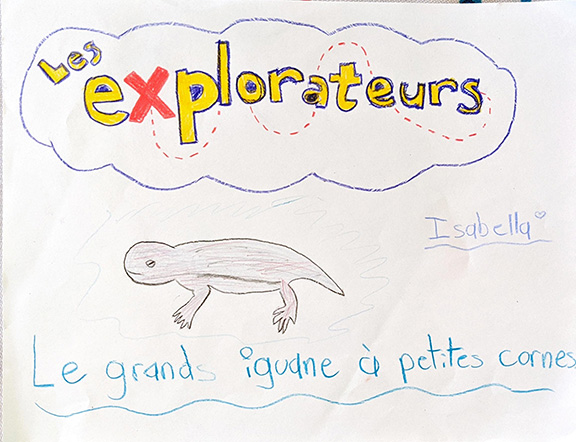 Les
explorateurs
Isabella
Le grands iguane à petites cornes